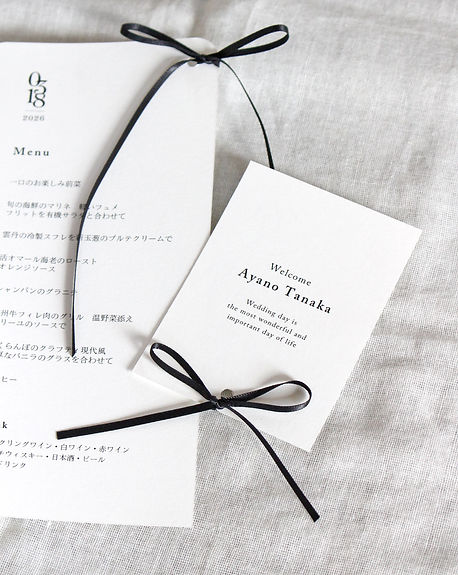 05
18
2026
Menu
一口のお楽しみ前菜
旬の海鮮のマリネ 軽いフュメ
フリットを有機サラダと合わせて
雲丹の冷製スフレを新玉葱のブルテクリームで
活オマール海老のロースト
オレンジソース
シャンパンのグラニテ
州牛フィレ肉のグリル 温野菜添え
リーユのソースで
くらんぼのクラフティ現代風
なバニラのグラスを合わせて
ーヒー
k
クリングワイン・白ワイン・赤ワイン
チウィスキー・日本酒・ビール
ドリンク
Welcome
Ayano Tanaka
Wedding day is
the most wonderful and
important day of life